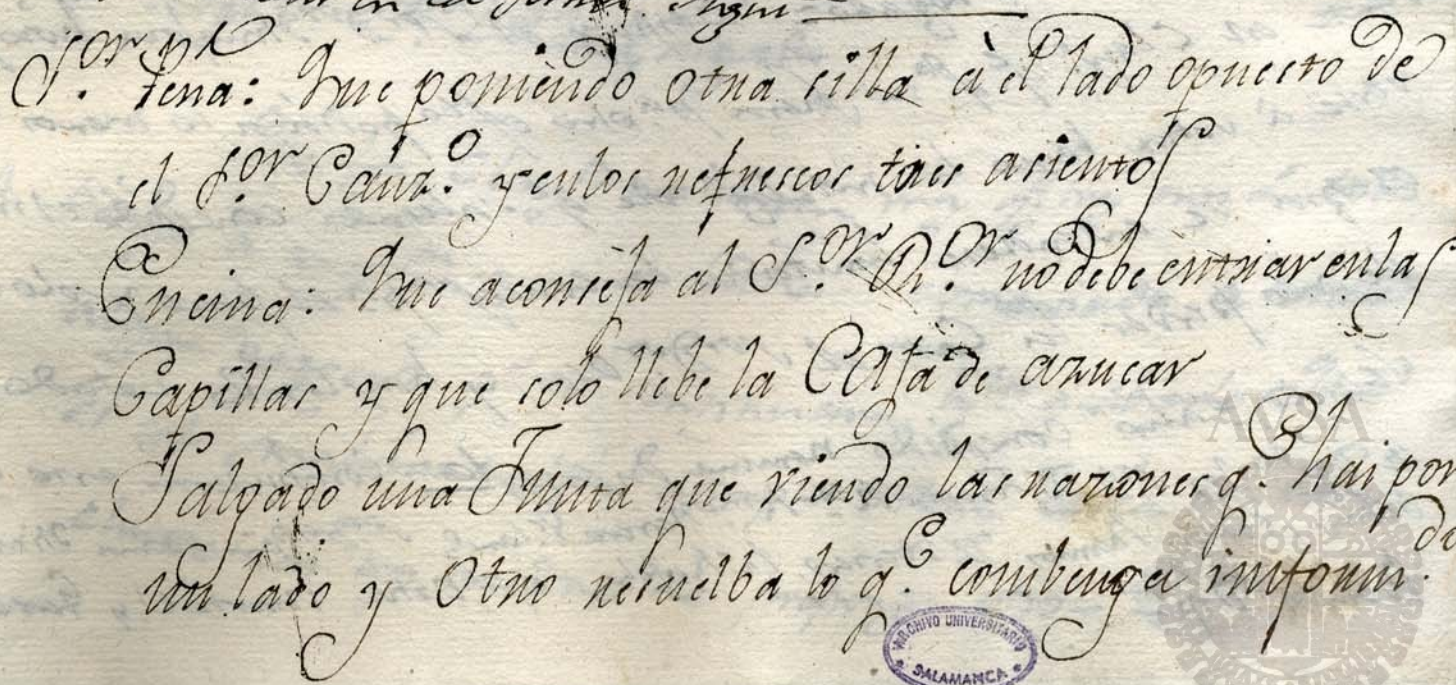 en la forma sigui
S.or Pena: que poniendo otra silla à el lado opuesto de
el S.or Canz.o y en los refrescos tres asientos
Encina: que aconseja al S.or R.or no debe entrar en las
Capillas y que solo llebe la Cafa de azucar
Salgado una Junta que viendo las razones q.e hai por
un lado y Otro resuelba lo q.e combenga inform.
de
ARCHIVO UNIVERSITARIO
SALAMANCA
AUSA